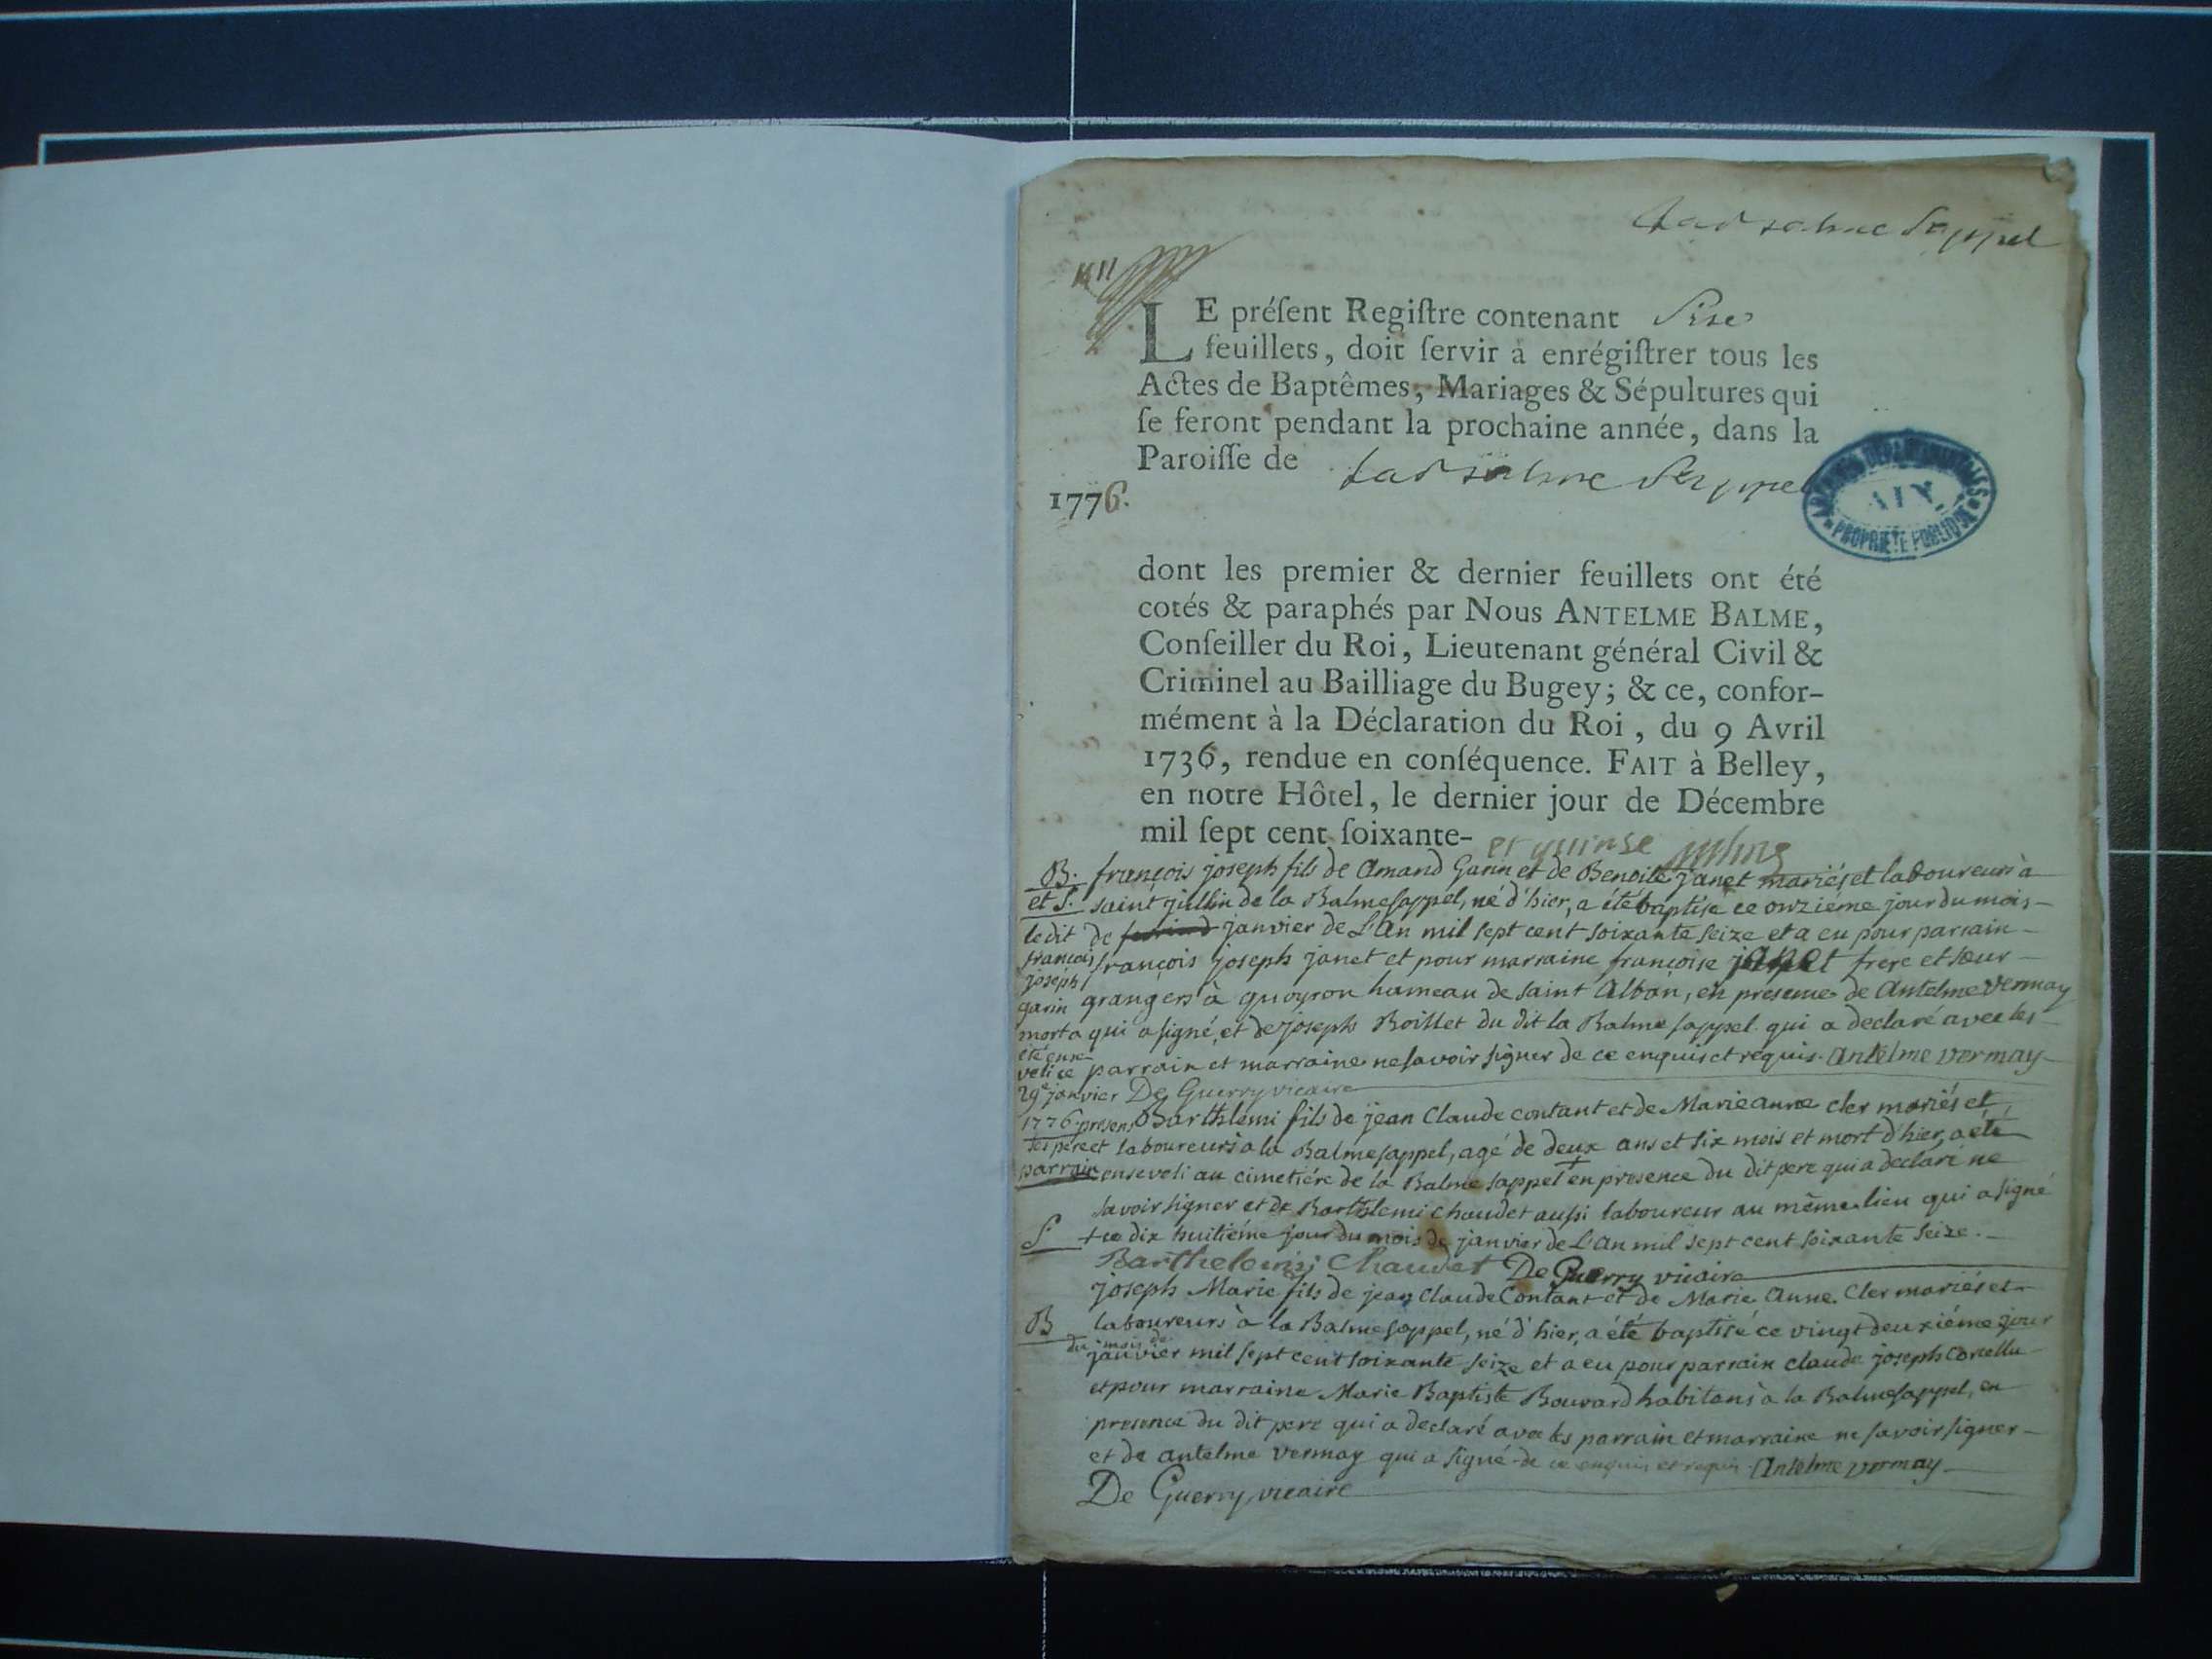 La Balme Sappel
LE préſent Regiſtre contenant Sise
feuillets, doit ſervir à enrégiſtrer tous les
Actes de Baptêmes, Mariages & Sépultures qui
ſe feront pendant la prochaine année, dans la
Paroiſſe de La Balme Sappel
1776.
ARCHIVES DÉPARTEMENTALES
AIN
PROPRIÉTÉ PUBLIQUE
dont les premier & dernier feuillets ont été
cotés & paraphés par Nous ANTELME BALME,
Conſeiller du Roi, Lieutenant général Civil &
Criminel au Bailliage du Bugey; & ce, confor-
mément à la Déclaration du Roi, du 9 Avril
1736, rendue en conſéquence. FAIT à Belley,
en notre Hôtel, le dernier jour de Décembre
mil ſept cent ſoixante- et quinse
B. et S. ledit françois joseph garin mort a été enseveli ce 29e janvier 1776. presens ses pere et parrain
françois joseph fils de Amand Garin et de Benoite Janet mariés et laboureurs à
saint jullin de la Balmesappel, né d'hier, a été baptisé ce onziéme jour du mois
de janvier de L'An mil sept cent soixante seize et a eu pour parrain
françois joseph janet et pour marraine françoise janet frere et sœur
grangers à quoyron hameau de saint Alban, en presence de Antelme Vermay
qui a signé, et de joseph Boillet du dit la Balme sappel qui a declaré avec les
parrain et marraine ne savoir signer de ce enquis et requis. Antelme vermay
De Guerry vicaire
S
Barthlemi fils de jean Claude contant et de Marie anne cler mariés et
laboureurs à la Balmesappel, agé de deux ans et six mois et mort d'hier, a été
enseveli au cimetiére de la Balme sappel + en presence du dit pere qui a declaré ne
savoir signer et de Barthlemi chaudet aussi laboureur au même lieu qui a signé
+ ce dix huitiéme jour du mois de janvier de L'an mil sept cent soixante seize.
Barthelemi Chaudet De Guerry vicaire
B
joseph Marie fils de jean Claude Contant et de Marie Anne Cler mariés et
laboureurs à la Balmesappel, né d'hier, a été baptisé ce vingt deuxiéme jour
du mois de janvier mil sept cent soixante seize et a eu pour parrain claude joseph
et pour marraine Marie Baptiste Bouvard habitans à la Balmesappel, en
presence du dit pere qui a declaré avec les parrain et marraine ne savoir signer
et de antelme vermay qui a signé de ce enquis et requis. Antelme vermay
De Guerry vicaire